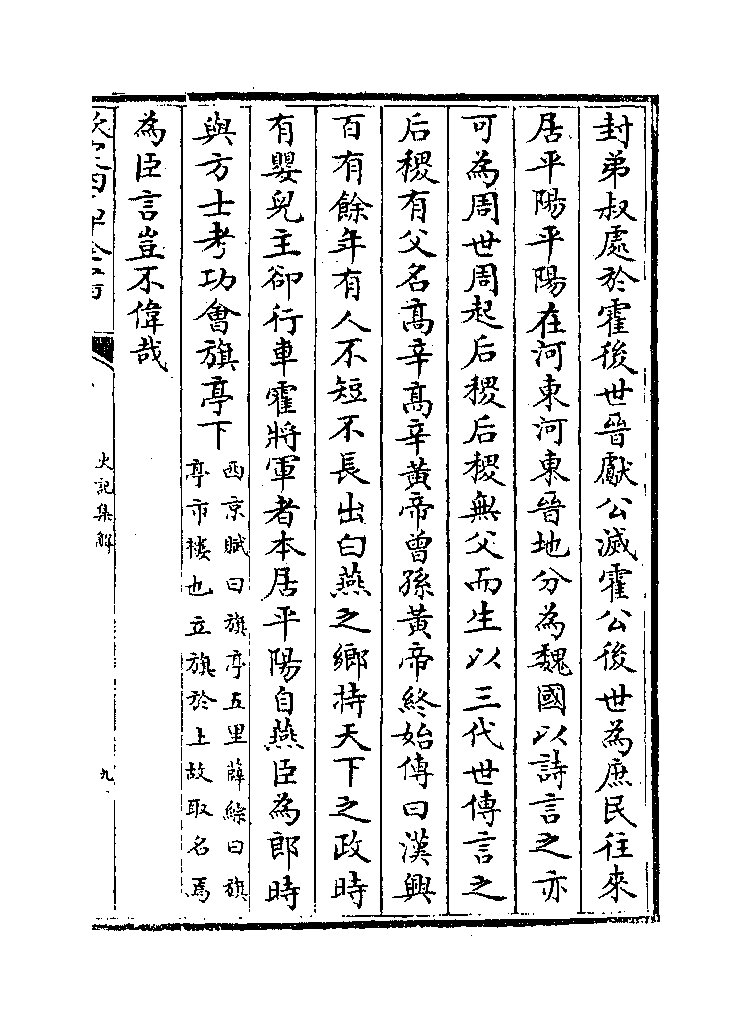 封弟叔處於霍後世晉獻公滅霍公後世為庶民往來
居平陽平陽在河東河東晉地分為魏國以詩言之亦
可為周世周起后稷后稷無父而生以三代世傳言之
后稷有父名髙辛髙辛黄帝曾孫黄帝終始傳曰漢興
百有餘年有人不短不長出白燕之鄉持天下之政時
有嬰兒主卻行車霍將軍者本居平陽白燕臣為郎時
與方士考功會旗亭下
西京賦曰旗亭五里薛綜曰旗
亭市樓也立旗於上故取名焉
為臣言豈不偉哉
欽定四庫全書
史記集解
九